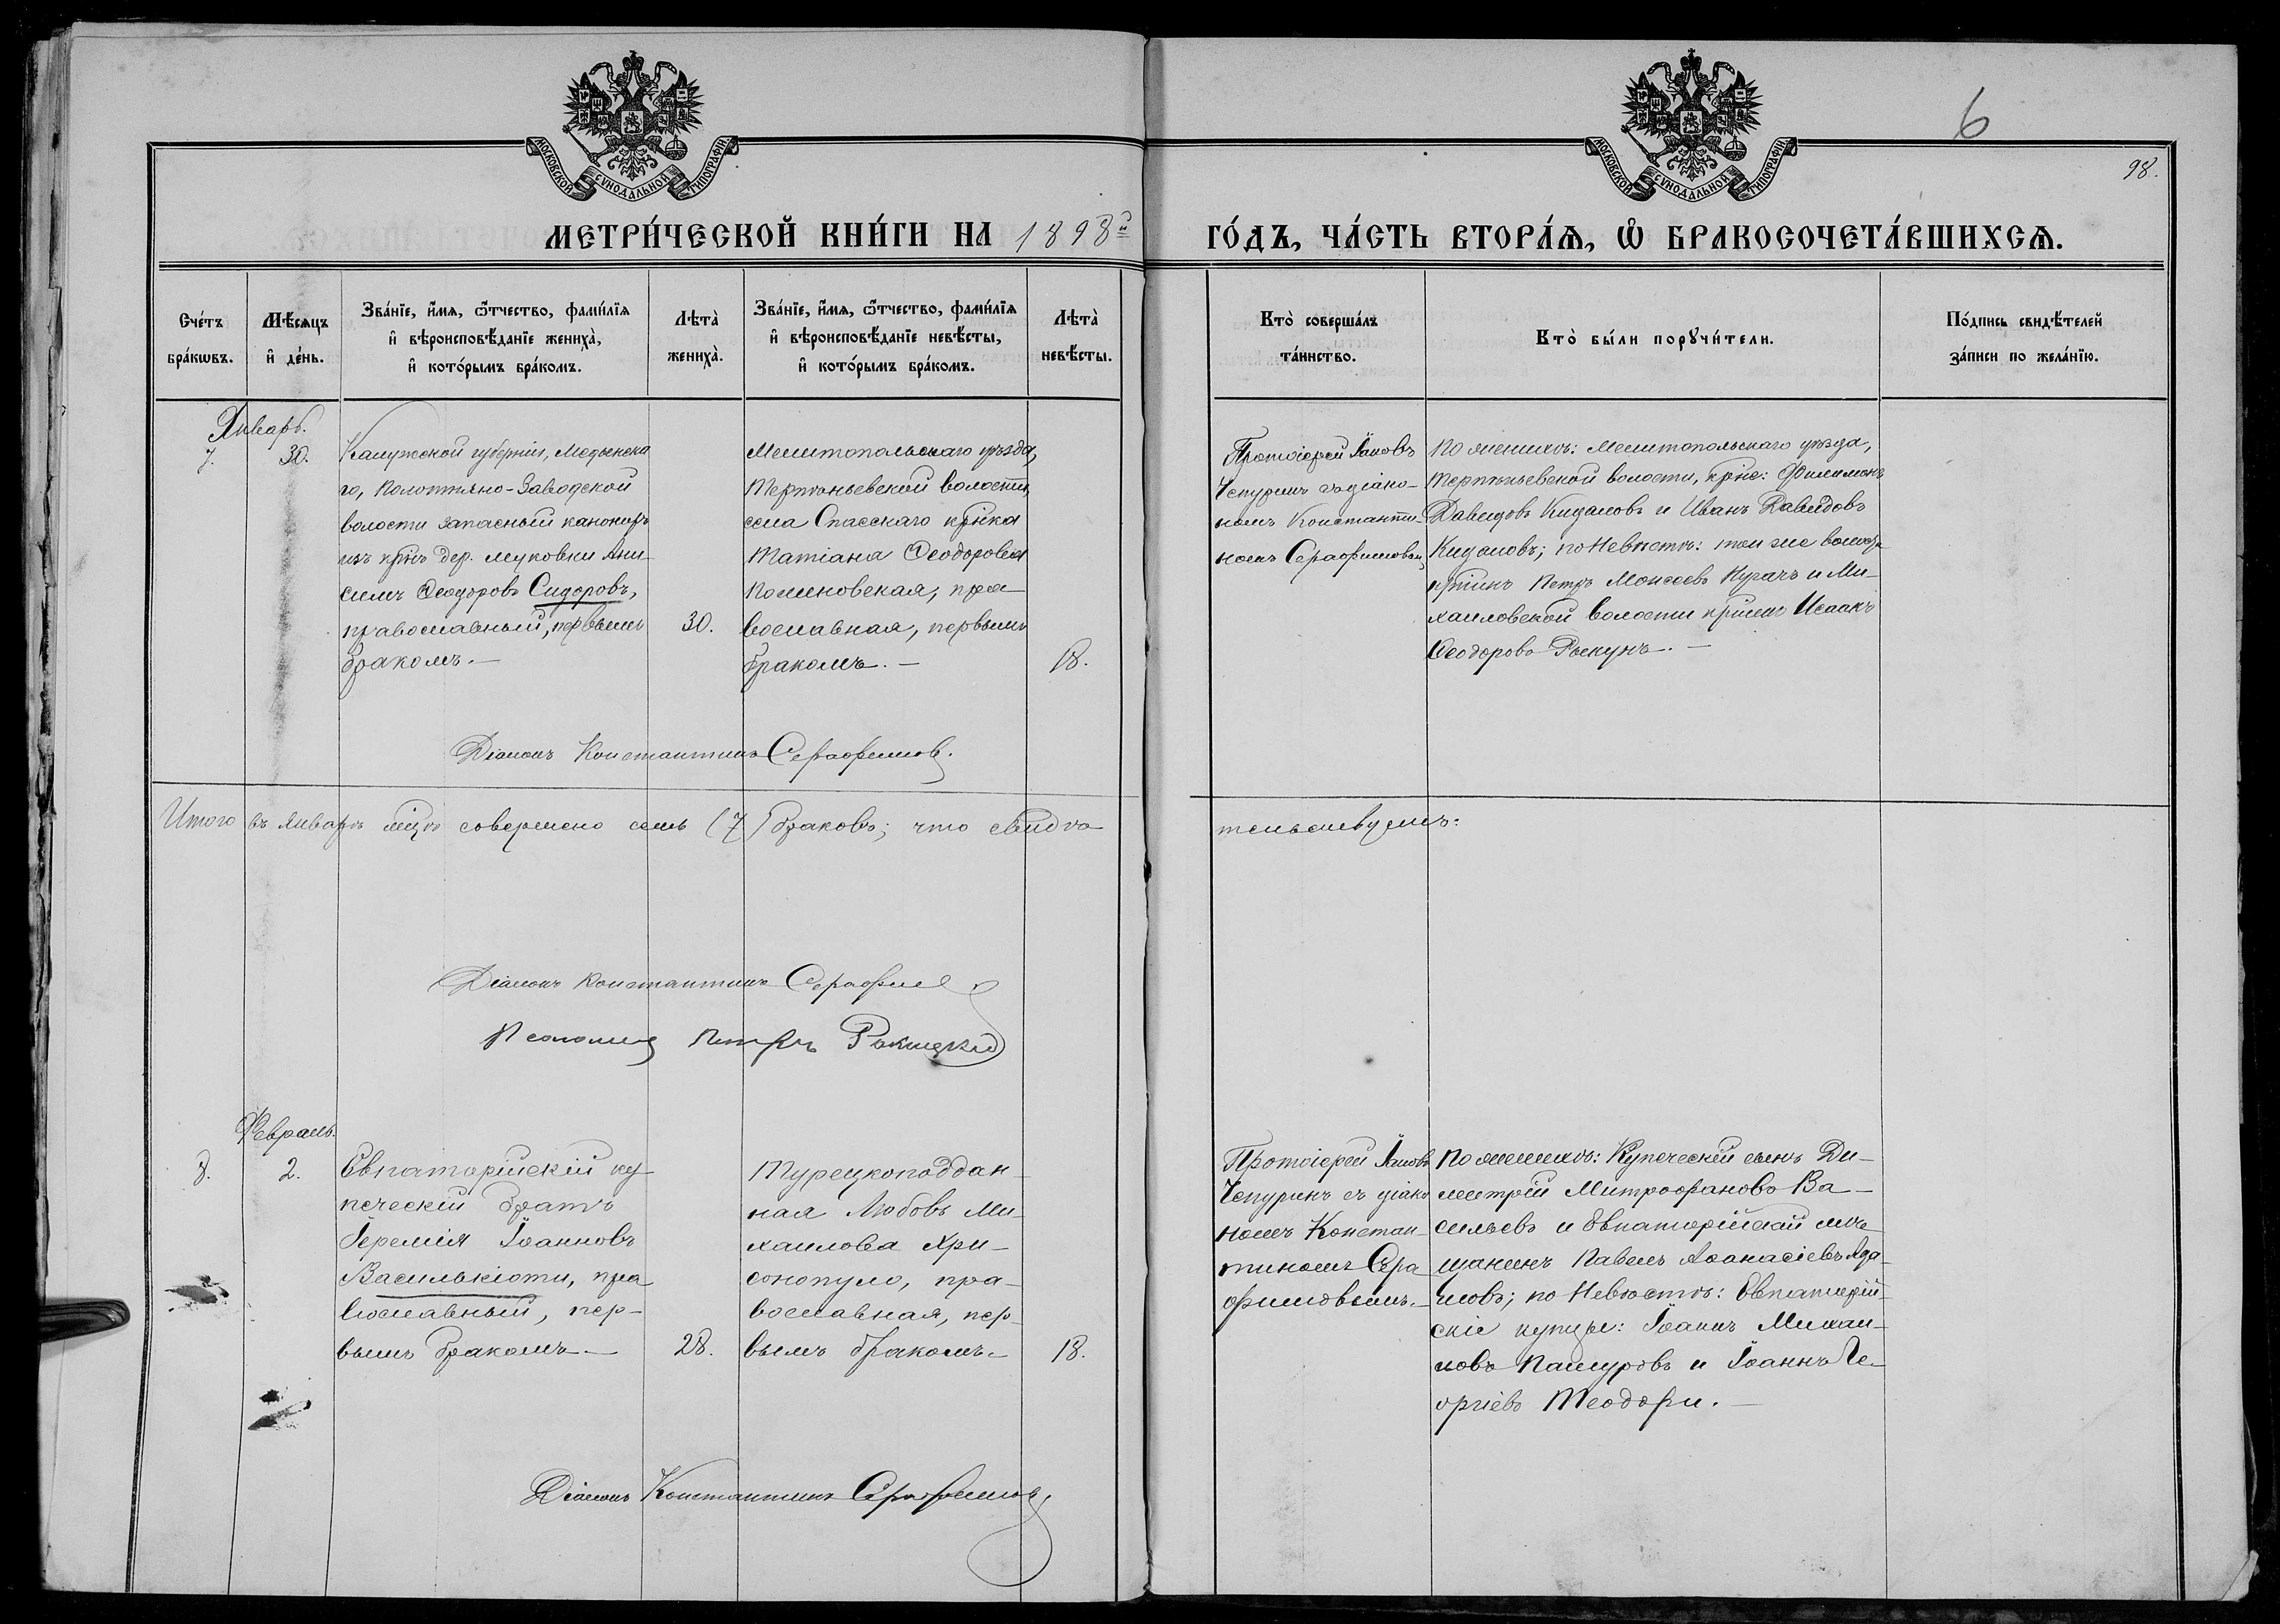 6
98.
МОСКОВСКОЙ СУНОДАЛЬНОЙ ТИПОГРАФІИ
МОСКОВСКОЙ СУНОДАЛЬНОЙ ТИПОГРАФІИ
МЕТРИ́ЧЕСКОЙ КНИ́ГИ НА 1898й
ГО́ДЪ, ЧА́СТЬ ВТОРА́Ѧ, Ѡ҆ БРАКОСОЧЕТА́ВШИХСѦ.
Сче́тъ
бра́кѡвъ.
Мѣ́сѧцъ
и҆ де́нь.
Зва́нїе, и҆́мѧ, ѻ҆́тчество, фами́лїѧ
и҆ вѣроисповѣ́данїе жениха̀,
и҆ кото́рымъ бра́комъ.
Лѣта̀
жениха̀.
Зва́нїе, и҆́мѧ, ѻ҆́тчество, фами́лїѧ
и҆ вѣроисповѣ́данїе невѣ́сты,
и҆ кото́рымъ бра́комъ.
Лѣта̀
невѣ́сты.
Кто̀ соверша́лъ
та́инство.
Кто̀ бы́ли порꙋчи́тели.
По́дпись свидѣ́телей
за́писи по жела́нїю.
Январь.
7.
30.
Калужской губерніи, Медынска
го, Полотняно-Заводской
волости запасный канониръ
изъ крнъ дер. Муковки Ани-
симъ Ѳеодоровъ Сидоровъ,
православный, первымъ
бракомъ.—
30.
Мелитопольскаго уѣзда,
Терпѣньевской волости,
села Спасскаго крнка
Татіана Ѳеодоровна
пра
вославная, первымъ
бракомъ.—
18.
Протоіерей Іаковъ
Чепуринъ съ діако-
номъ Константи-
номъ Серафимовымъ
По женихѣ: Мелитопольскаго уѣзда,
Терпѣньевской волости, крне: Филимонъ
Давидовъ Кидаловъ и Иванъ Давидовъ
Кидаловъ; по Невѣстѣ: той же волости
Петръ Моисеевъ Кугачъ и Ми-
хайловской волости Исаакъ
Ѳеодоровъ
Діаконъ Константинъ Серафимовъ.
Итого въ январѣ мцѣ совершено семь (7) браковъ; что свидѣ
тельствуемъ:
Діаконъ Константинъ Серафимо
Псаломщ Петръ Ракицкій
Февраль.
8.
2.
Евпаторійскій ку
печескій братъ
Іеремія Іоанновъ
Василькіоти, пра
вославный, пер-
вымъ бракомъ—
28.
Турецкоподдан-
ная Любовь Ми-
хаилова Хри-
сопуло, пра-
вославная, пер-
вымъ бракомъ.
18.
Протоіерей Іаковъ
Чепуринъ съ діако
номъ Констан-
тиномъ Сера
фимовымъ.—
По женихѣ: Купеческій сынъ Ди-
митрій Митрофановъ Ва-
сильевъ и Евпаторійскій мѣ
щанинъ Павелъ Аѳанасіевъ Ада-
мовъ; по Невѣстѣ: Евпаторій-
скіе купцы: Іоаннъ Михаи-
ловъ Пашуровъ и Іоаннъ Ге-
оргіевъ Теодори.—
Діаконъ Константинъ Серафимовъ